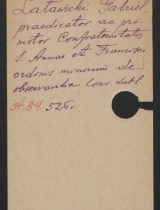 Latawicki Gabriel
praedicator ac pro-
motor Confraternitatis
S. Annae et Francisci
ordinis minorum de
observantia Conv. Lubl.
A. 84. 526r.